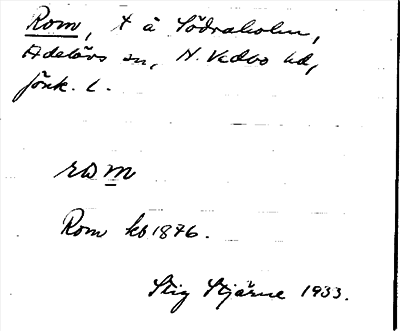 Rom, t å Södraholm,
Adelövs sn, N. Vedbo hd,
Jönk. L.
rom
Rom kb 1876.
Stig Stjärne 1933.